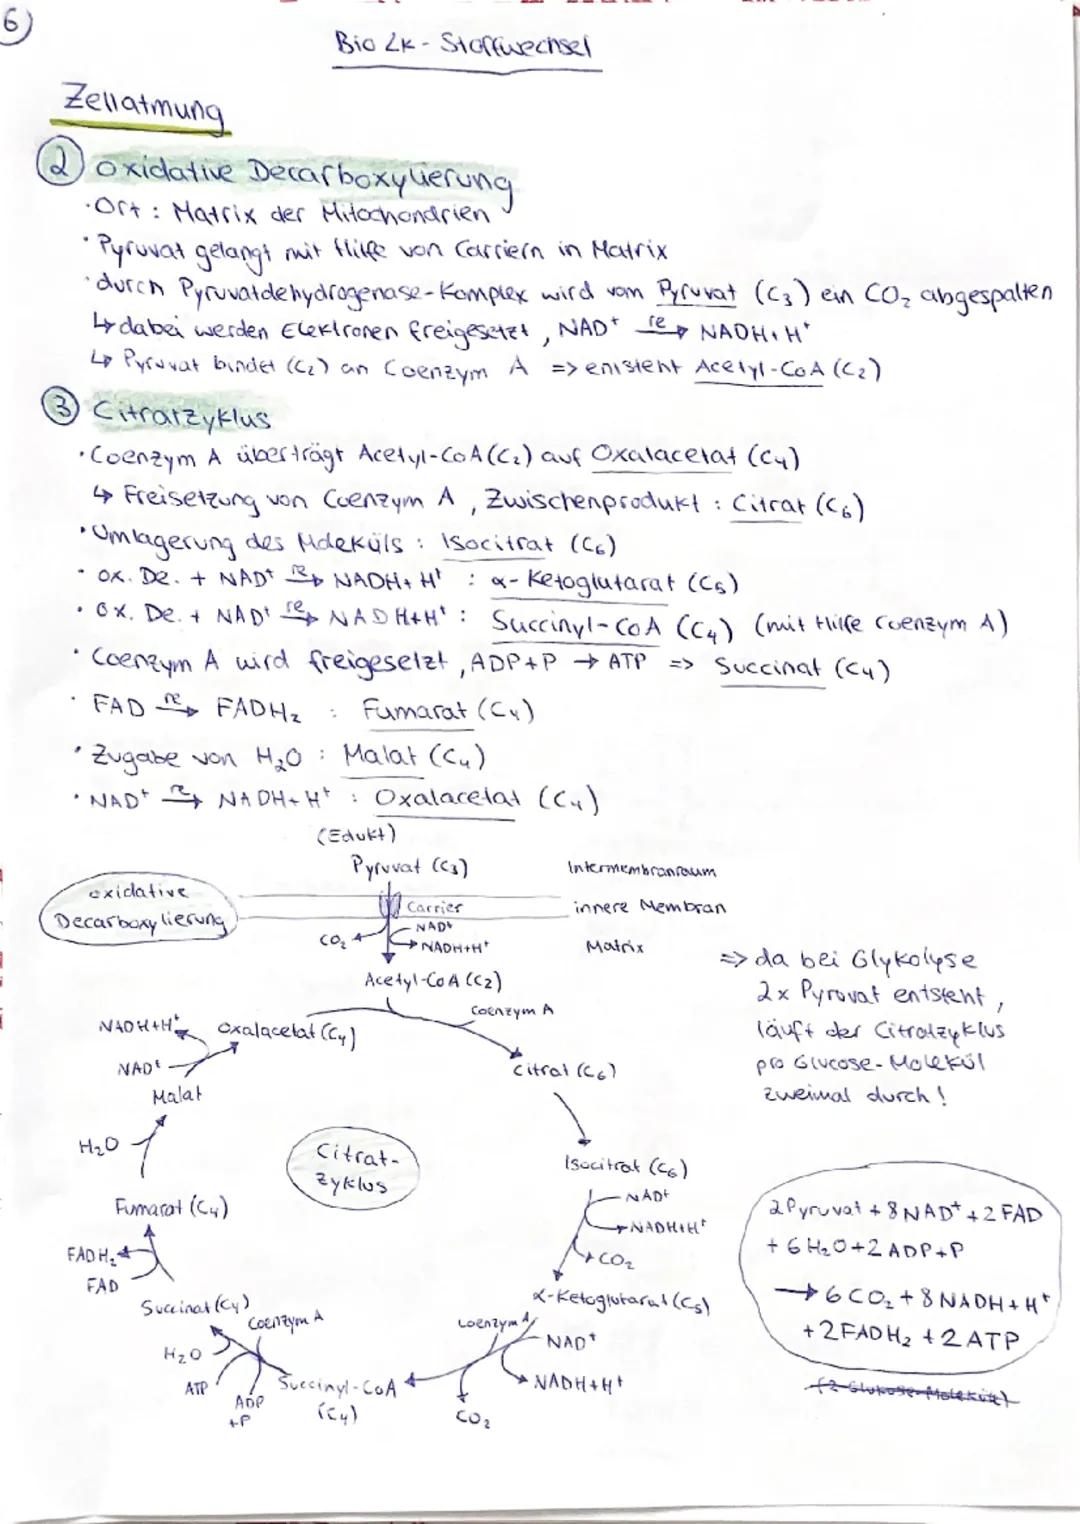 6)
Bio LK - Stoffwechsel
Zellatmung
② oxidative Decarboxylierung
· Ort : Matrix der Mitochondrien
· Pyruvat gelangt mit Hilfe von Carriern in Matrix
· durch Pyruvatdehydrogenase-Komplex wird vom Pyruvat (C₃) ein CO₂ abgespalten
↳ dabei werden Elektronen freigesetzt, NAD⁺ re→ NADH+H⁺
↳ Pyruvat bindet (C₂) an Coenzym A => entsteht Acetyl-CoA (C₂)
③ Citratzyklus
· Coenzym A überträgt Acetyl-CoA (C₂) auf Oxalacetat (C₄)
↳ Freisetzung von Coenzym A, Zwischenprodukt : Citrat (C₆)
· Umlagerung des Moleküls : Isocitrat (C₆)
· ox. De. + NAD⁺ re→ NADH+H⁺ : α-Ketoglutarat (C₅)
· ox. De. + NAD⁺ re→ NADH+H⁺ : Succinyl-CoA (C₄) (mit Hilfe Coenzym A)
· Coenzym A wird freigesetzt, ADP+P → ATP => Succinat (C₄)
· FAD re→ FADH₂ : Fumarat (C₄)
· Zugabe von H₂O : Malat (C₄)
· NAD⁺ re→ NADH+H⁺ : Oxalacetat (C₄)
(Edukt)
Pyruvat (C₃)
Intermembranraum
oxidative
Decarboxylierung
Carrier
innere Membran
CO₂
NAD⁺
NADH+H⁺
Matrix
Acetyl-CoA (C₂)
Coenzym A
NADH+H⁺
Oxalacetat (C₄)
NAD⁺
Malat
Citrat (C₆)
=> da bei Glykolyse
2x Pyruvat entsteht,
läuft der Citratzyklus
pro Glucose-Molekül
zweimal durch!
H₂O
Citrat-
zyklus
Isocitrat (C₆)
NAD⁺
NADH+H⁺
CO₂
Fumarat (C₄)
FADH₂
FAD
α-Ketoglutarat (C₅)
Succinat (C₄)
Coenzym A
Coenzym A
NAD⁺
NADH+H⁺
H₂O
ATP
ADP
+P
Succinyl-CoA
(C₄)
CO₂
2 Pyruvat + 8 NAD⁺ + 2 FAD
+ 6 H₂O + 2 ADP+P
→ 6 CO₂ + 8 NADH+H⁺
+ 2 FADH₂ + 2 ATP
(2 Glukose-Moleküle)